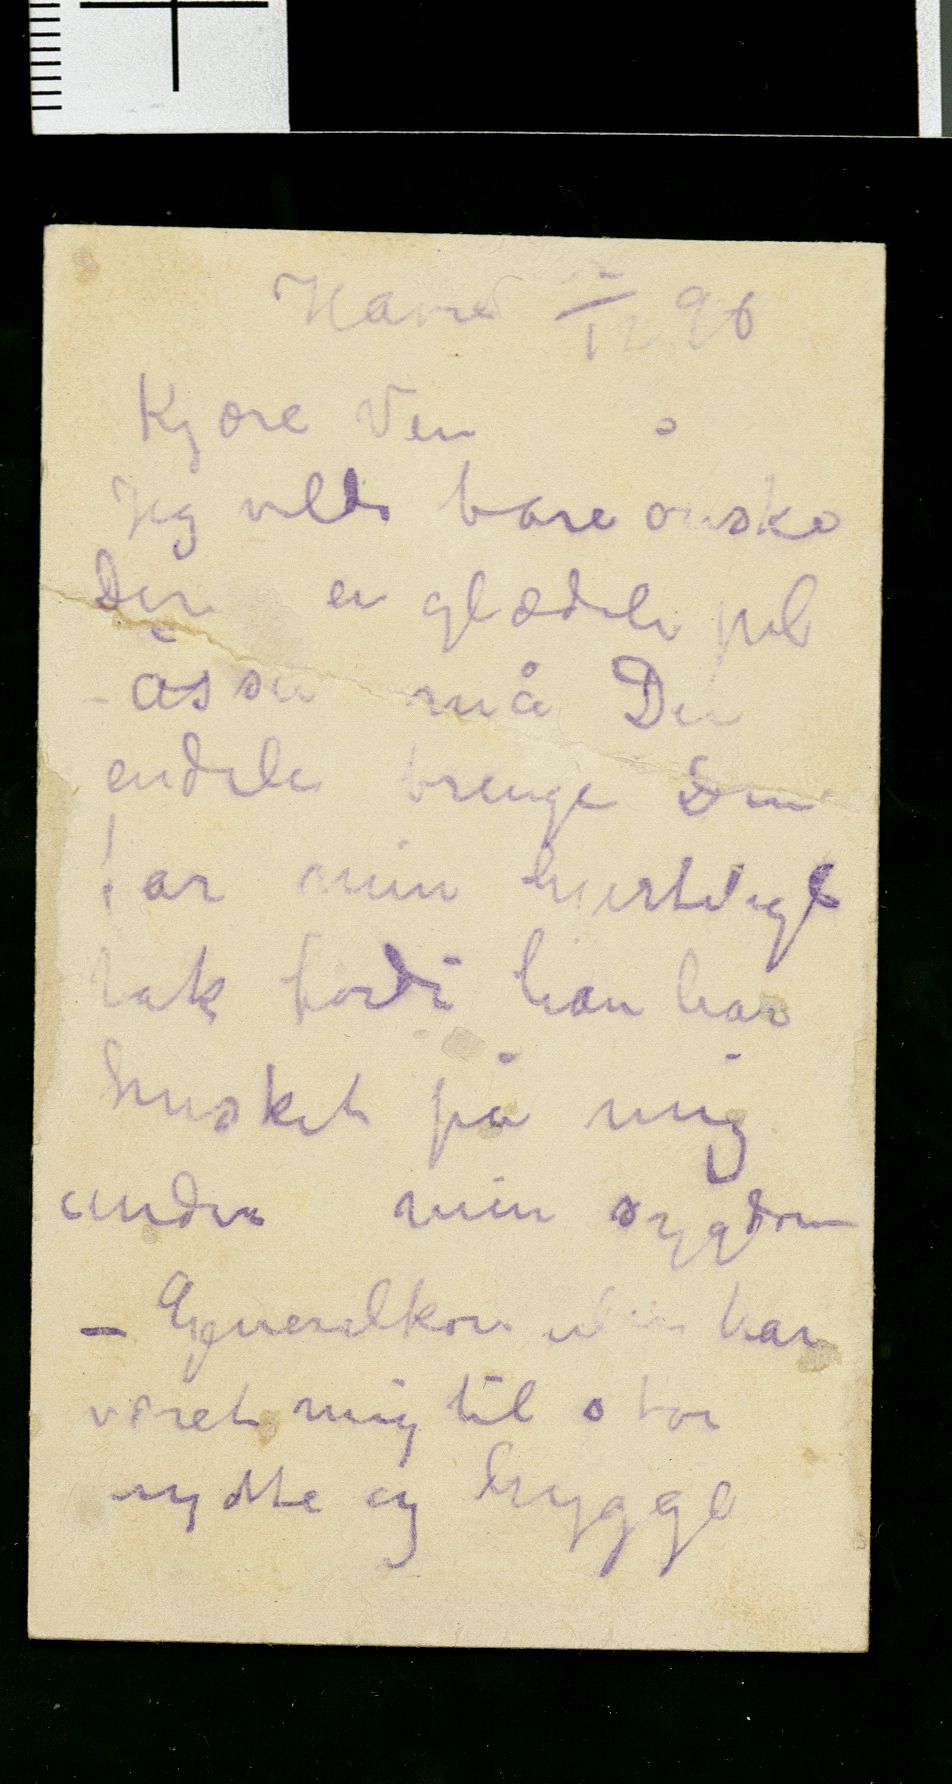 Havre /12 96
Kjære Ven
Jeg vilde bare ønske
Dere en glædeli jul
– åsså må Du
endeli bringe Din
Far min hjerteligste
tak fordi han har
husket på mig
under min sygdom
– Generalkonsulen har
været mig til stor
nytte og hygge